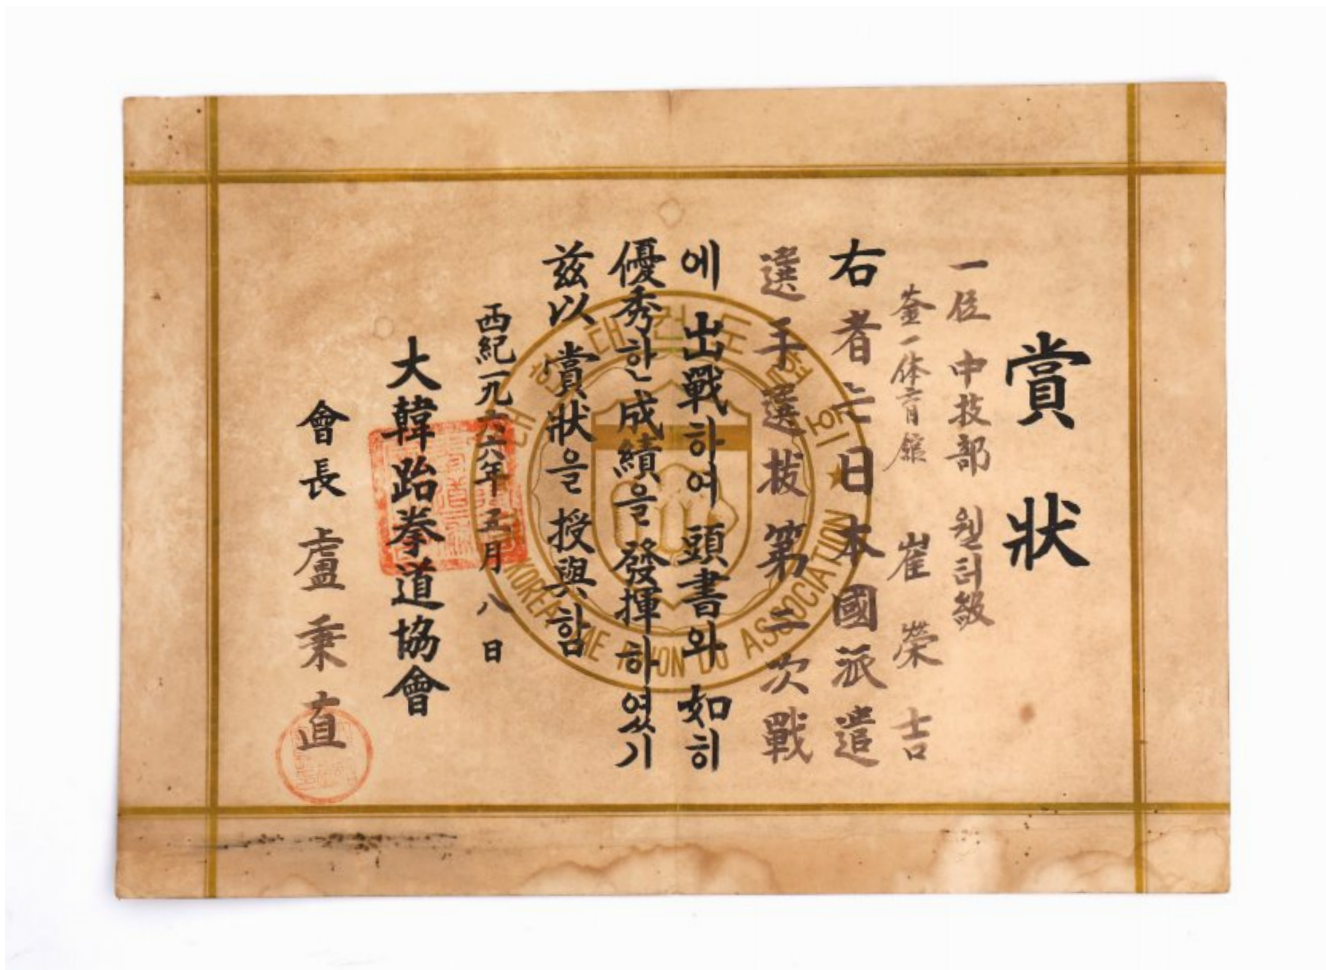 賞狀
一位 中技部 웰터級
釜一体育舘 崔榮吉
右者는 日本國派遣
選手選拔第二次戰
에 出戰하여 頭書와 如히
優秀한 成績을 發揮하였기
玆以 賞狀을 授與함
西紀一九六六年五月八日
大韓跆拳道協會
會長 盧秉直
대한태권도협회
KOREA TAE KWON DO ASSOCIATION